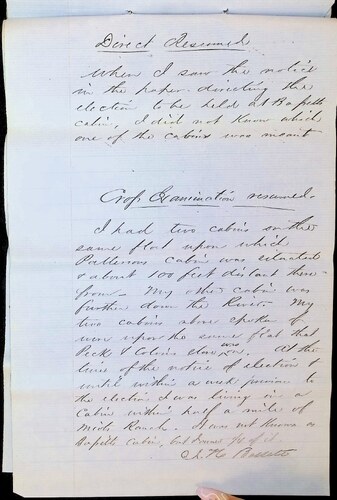 Direct Resumed
When I saw the notice
in the paper directing the
election to be held at Bassetts
cabin. I did not know which
one of the cabins was meant
Cross Examination resumed.
I had two cabins in the
same flat upon which
Pattersons cabin was situated
& about 100 feet distant there
from - My other cabin was
further down the River. My
two cabins above spoken of
were upon the same flat that
store was on. At the
time of the notice of election &
until within a week previous to
the election I was living in a
cabin within half a mile of
Ranch. It was not known as
Bassetts cabin, but I owned ½ of it.
Bassett